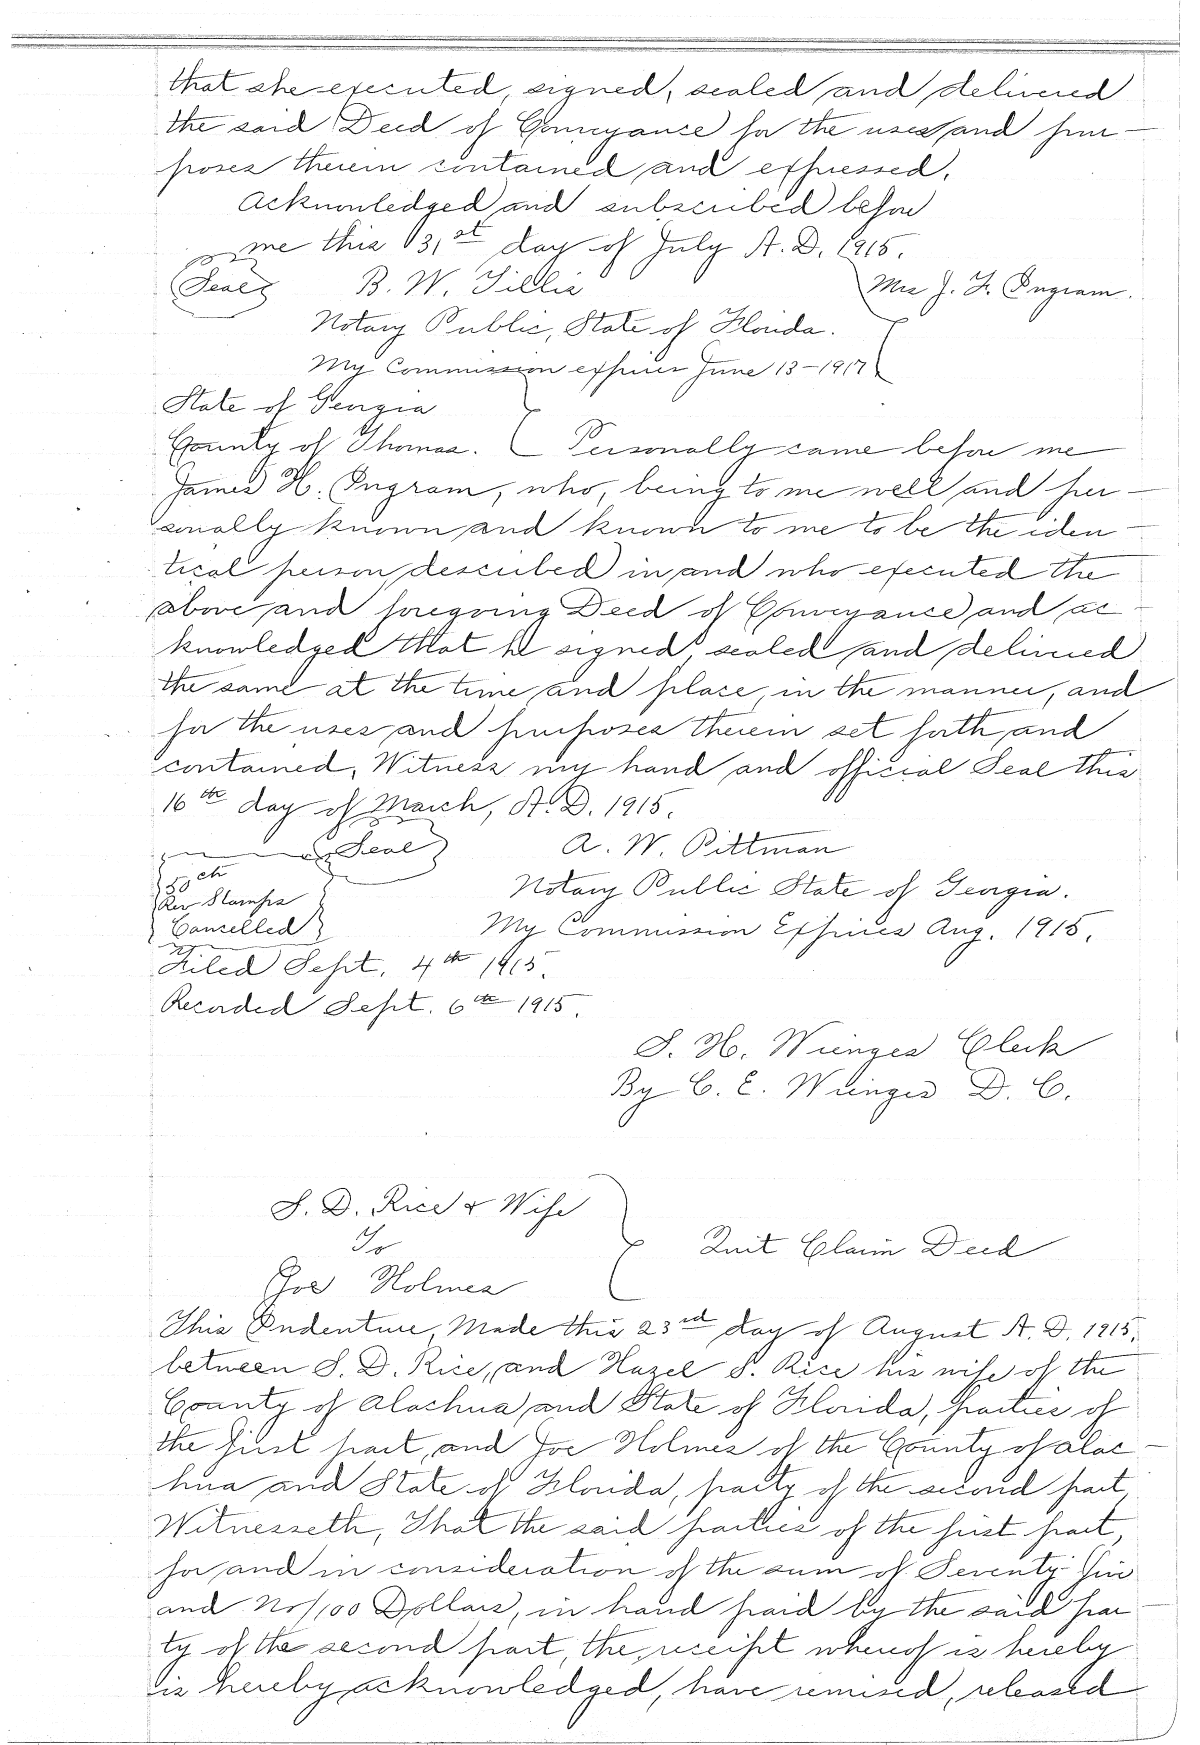 that she executed, signed, sealed and delivered
the said Deed of Conveyance for the uses and pur-
poses therein contained and expressed.
Acknowledged and subscribed before
me this 31st day of July A.D. 1915.
(Seal) B. W. Tillis Mrs J. H. Ingram.
Notary Public, State of Florida.
My Commission expires June 13-1917
State of Georgia
County of Thomas. Personally came before me
James H. Ingram, who, being to me well and per-
sonally known and known to me to be the iden-
tical person described in and who executed the
above and foregoing Deed of Conveyance and ac-
knowledged that he signed, sealed and delivered
the same at the time and place, in the manner, and
for the uses and purposes therein set forth and
contained, Witness my hand and official Seal this
16th day of March, A.D. 1915.
Seal A. W. Pittman
50 cts
Notary Public State of Georgia.
Rev Stamps
Cancelled My Commission Expires Aug. 1915.
Filed Sept. 4th 1915.
Recorded Sept. 6th 1915.
S. H. Wienges Clerk
By C. E. Wienges D. C.
S. D. Rice & Wife
To Quit Claim Deed
Joe Holmes
This Indenture, Made this 23rd day of August A. D. 1915,
between S. D. Rice, and Hazel S. Rice his wife of the
County of Alachua and State of Florida, parties of
the first part, and Joe Holmes of the County of Alac-
hua and State of Florida, party of the second part,
Witnesseth, That the said parties of the first part,
for and in consideration of the sum of Seventy five
and No/100 Dollars, in hand paid by the said par-
ty of the second part, the receipt whereof is hereby
is hereby acknowledged, have remised, released